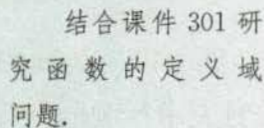 结合课件 301 研
究函数的定义域
问题.